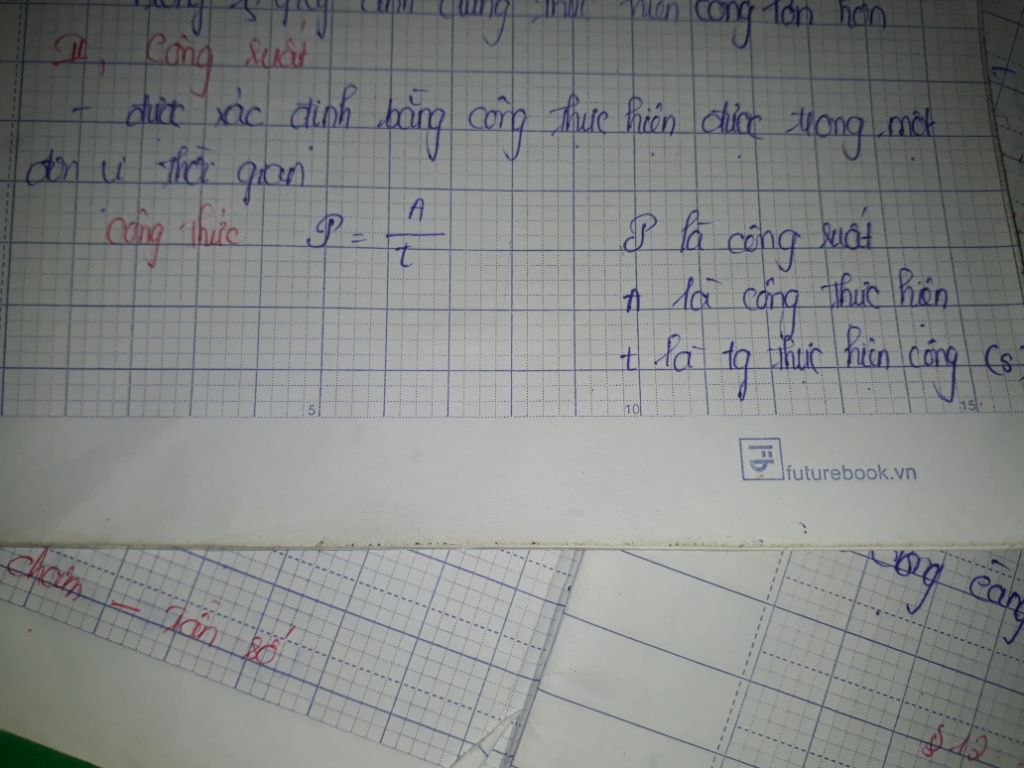 công lớn hơn
II, Công suất
- được xác định bằng công thực hiện được trong một
đơn vị thời gian
công thức P = A / t
P là công suất
A là công thực hiện
t là tg thực hiện công (s)
5 10 15
futurebook.vn
chậm - Tần số
càng
§ 12